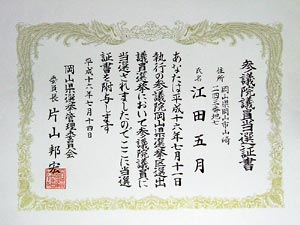 参議院議員当選証書
住所 岡山県岡山市山崎
二四三番地七
氏名 江田五月
あなたは平成十六年七月十一日
執行の参議院岡山県選挙区選出
議員選挙において参議院議員に
当選されましたのでここに当選
証書を附与します
平成十六年七月十四日
岡山県選挙管理委員会
委員長 片山邦宏